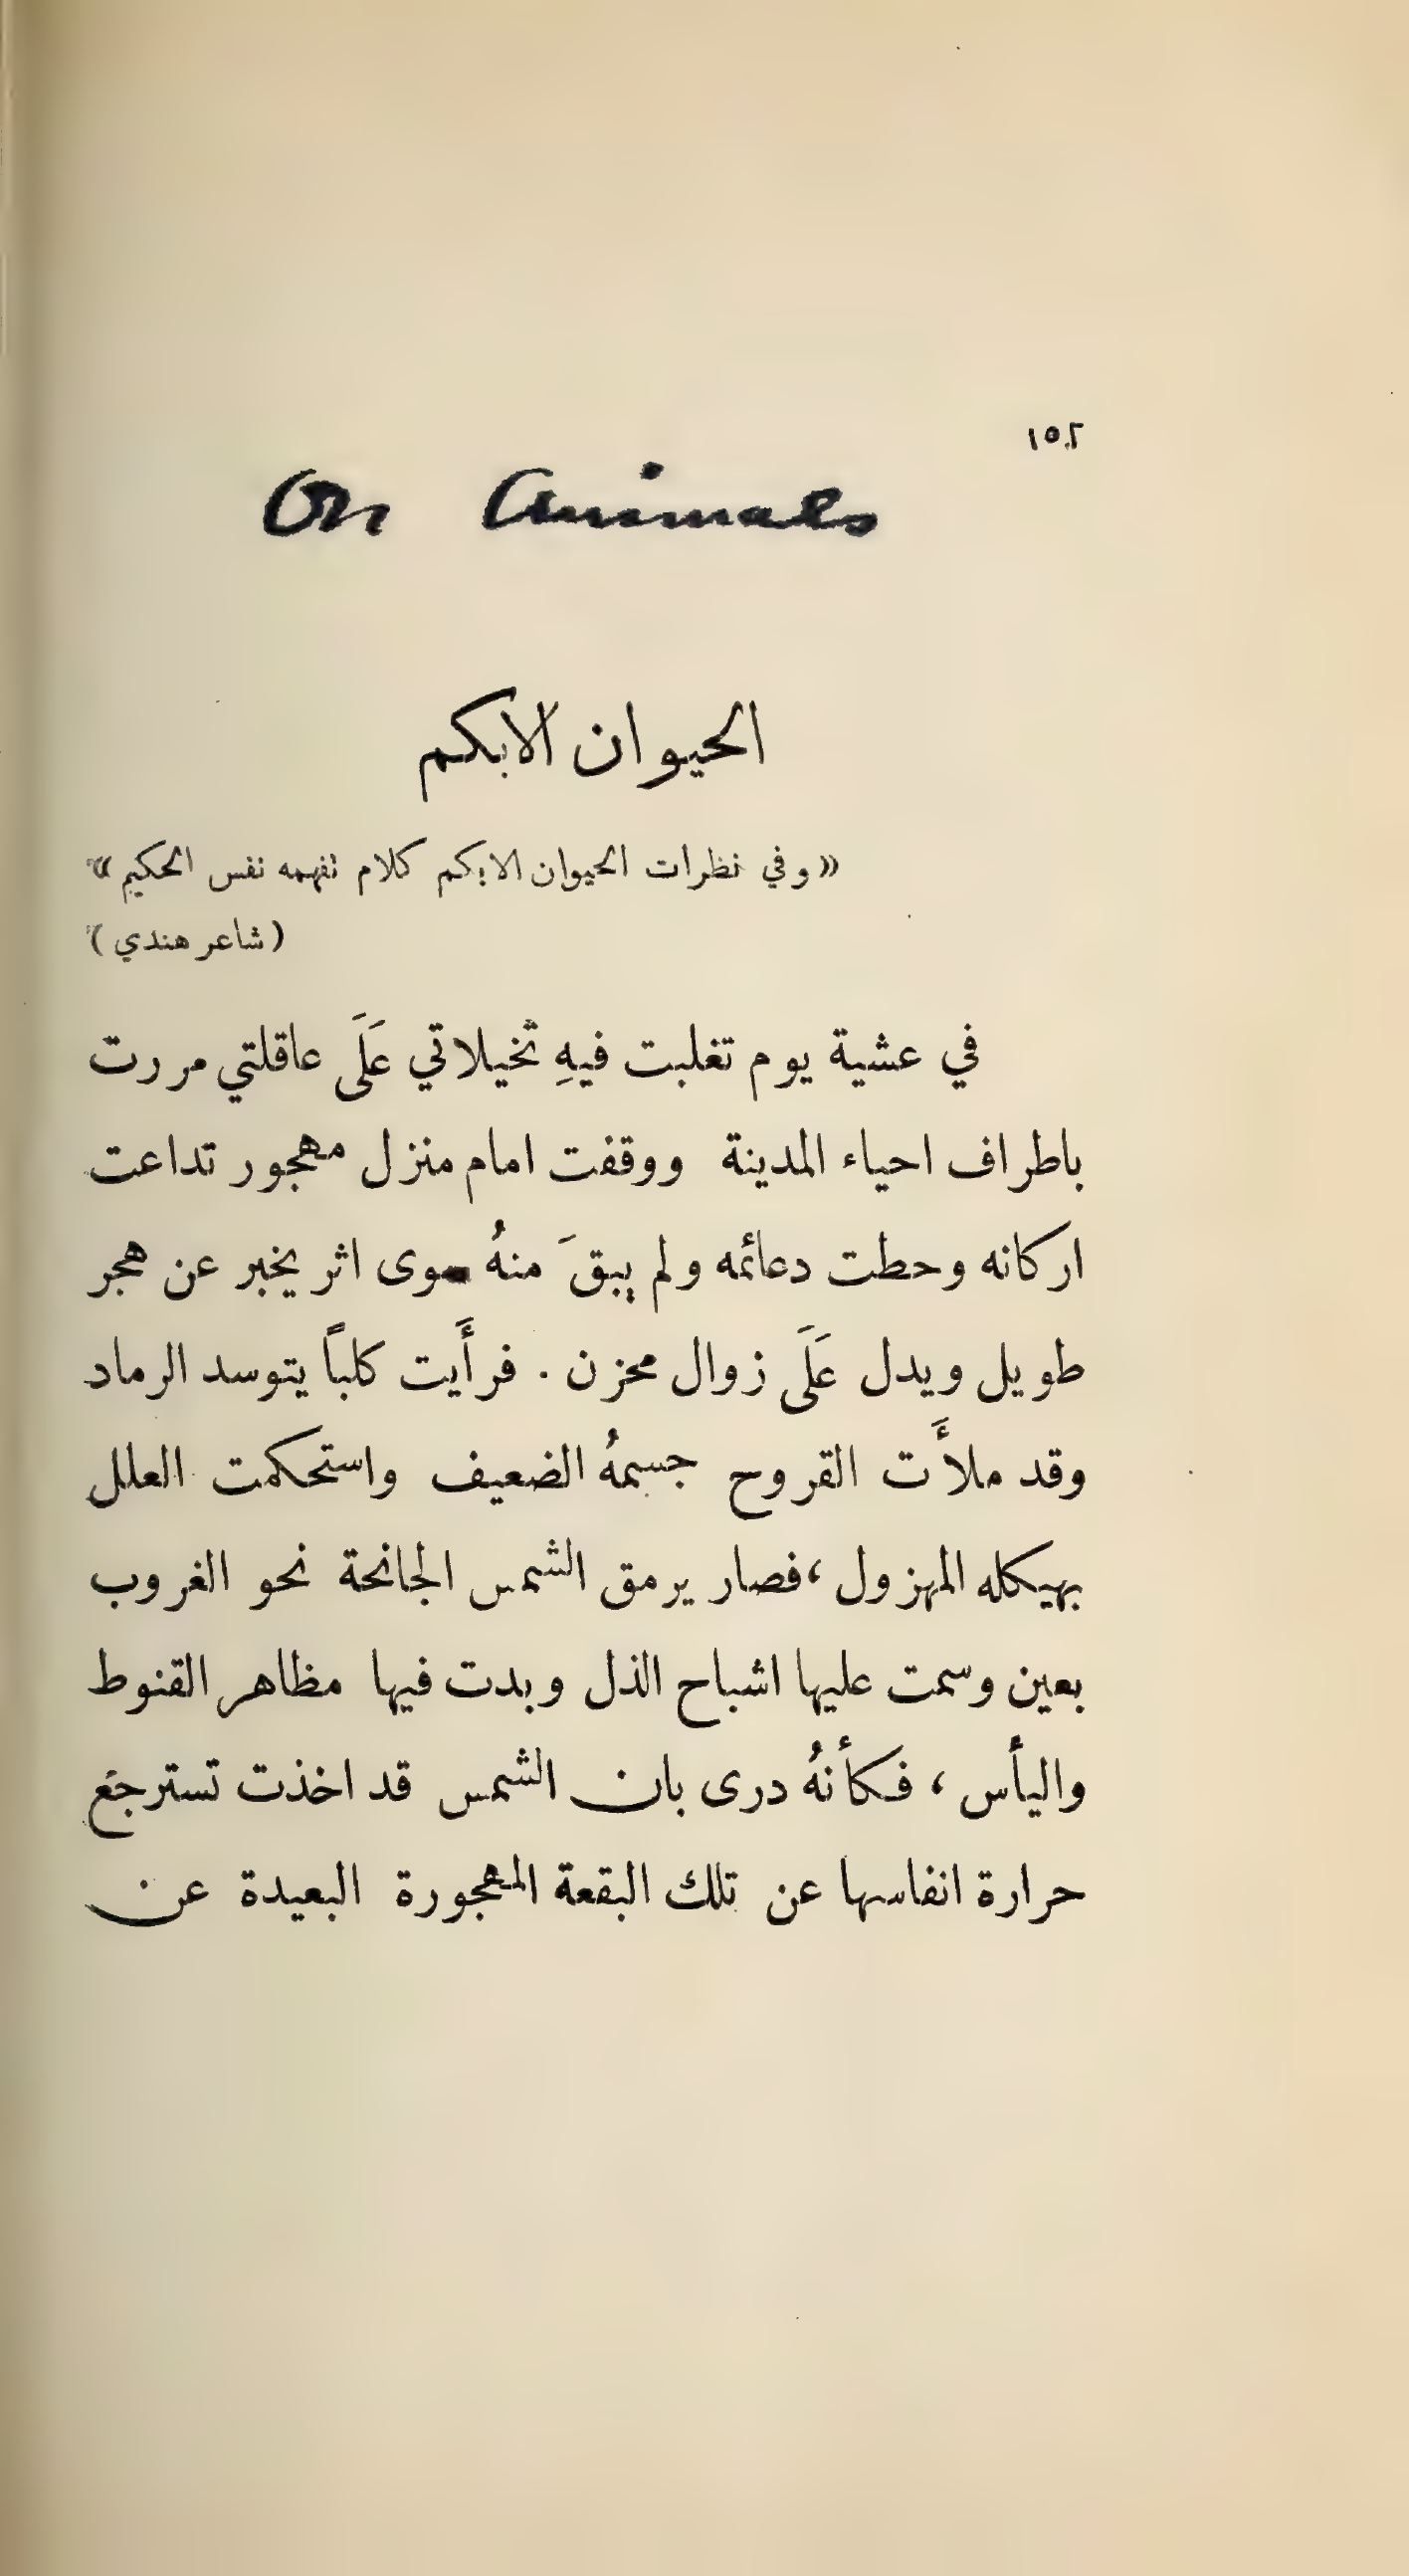 ١٥٢
On Animals
الحيوان الابكم
«وفي نظرات الحيوان الابكم كلام تفهمه نفس الحكيم»
(شاعر هندي)
في عشية يوم تغلبت فيهِ تخيلاتي عَلَى عاقلتي مررت
باطراف احياء المدينة ووقفت امام منزل مهجور تداعت
اركانه وحطت دعائمه ولم يبقَ منهُ سوى اثر يخبر عن هجر
طويل ويدل عَلَى زوال محزن . فرأَيت كلباً يتوسد الرماد
وقد ملأَت القروح جسمهُ الضعيف واستحكمت العلل
بهيكله المهزول ، فصار يرمق الشمس الجانحة نحو الغروب
بعين وسمت عليها اشباح الذل وبدت فيها مظاهر القنوط
واليأس ، فكأنهُ درى بان الشمس قد اخذت تسترجع
حرارة انفاسها عن تلك البقعة المهجورة البعيدة عن